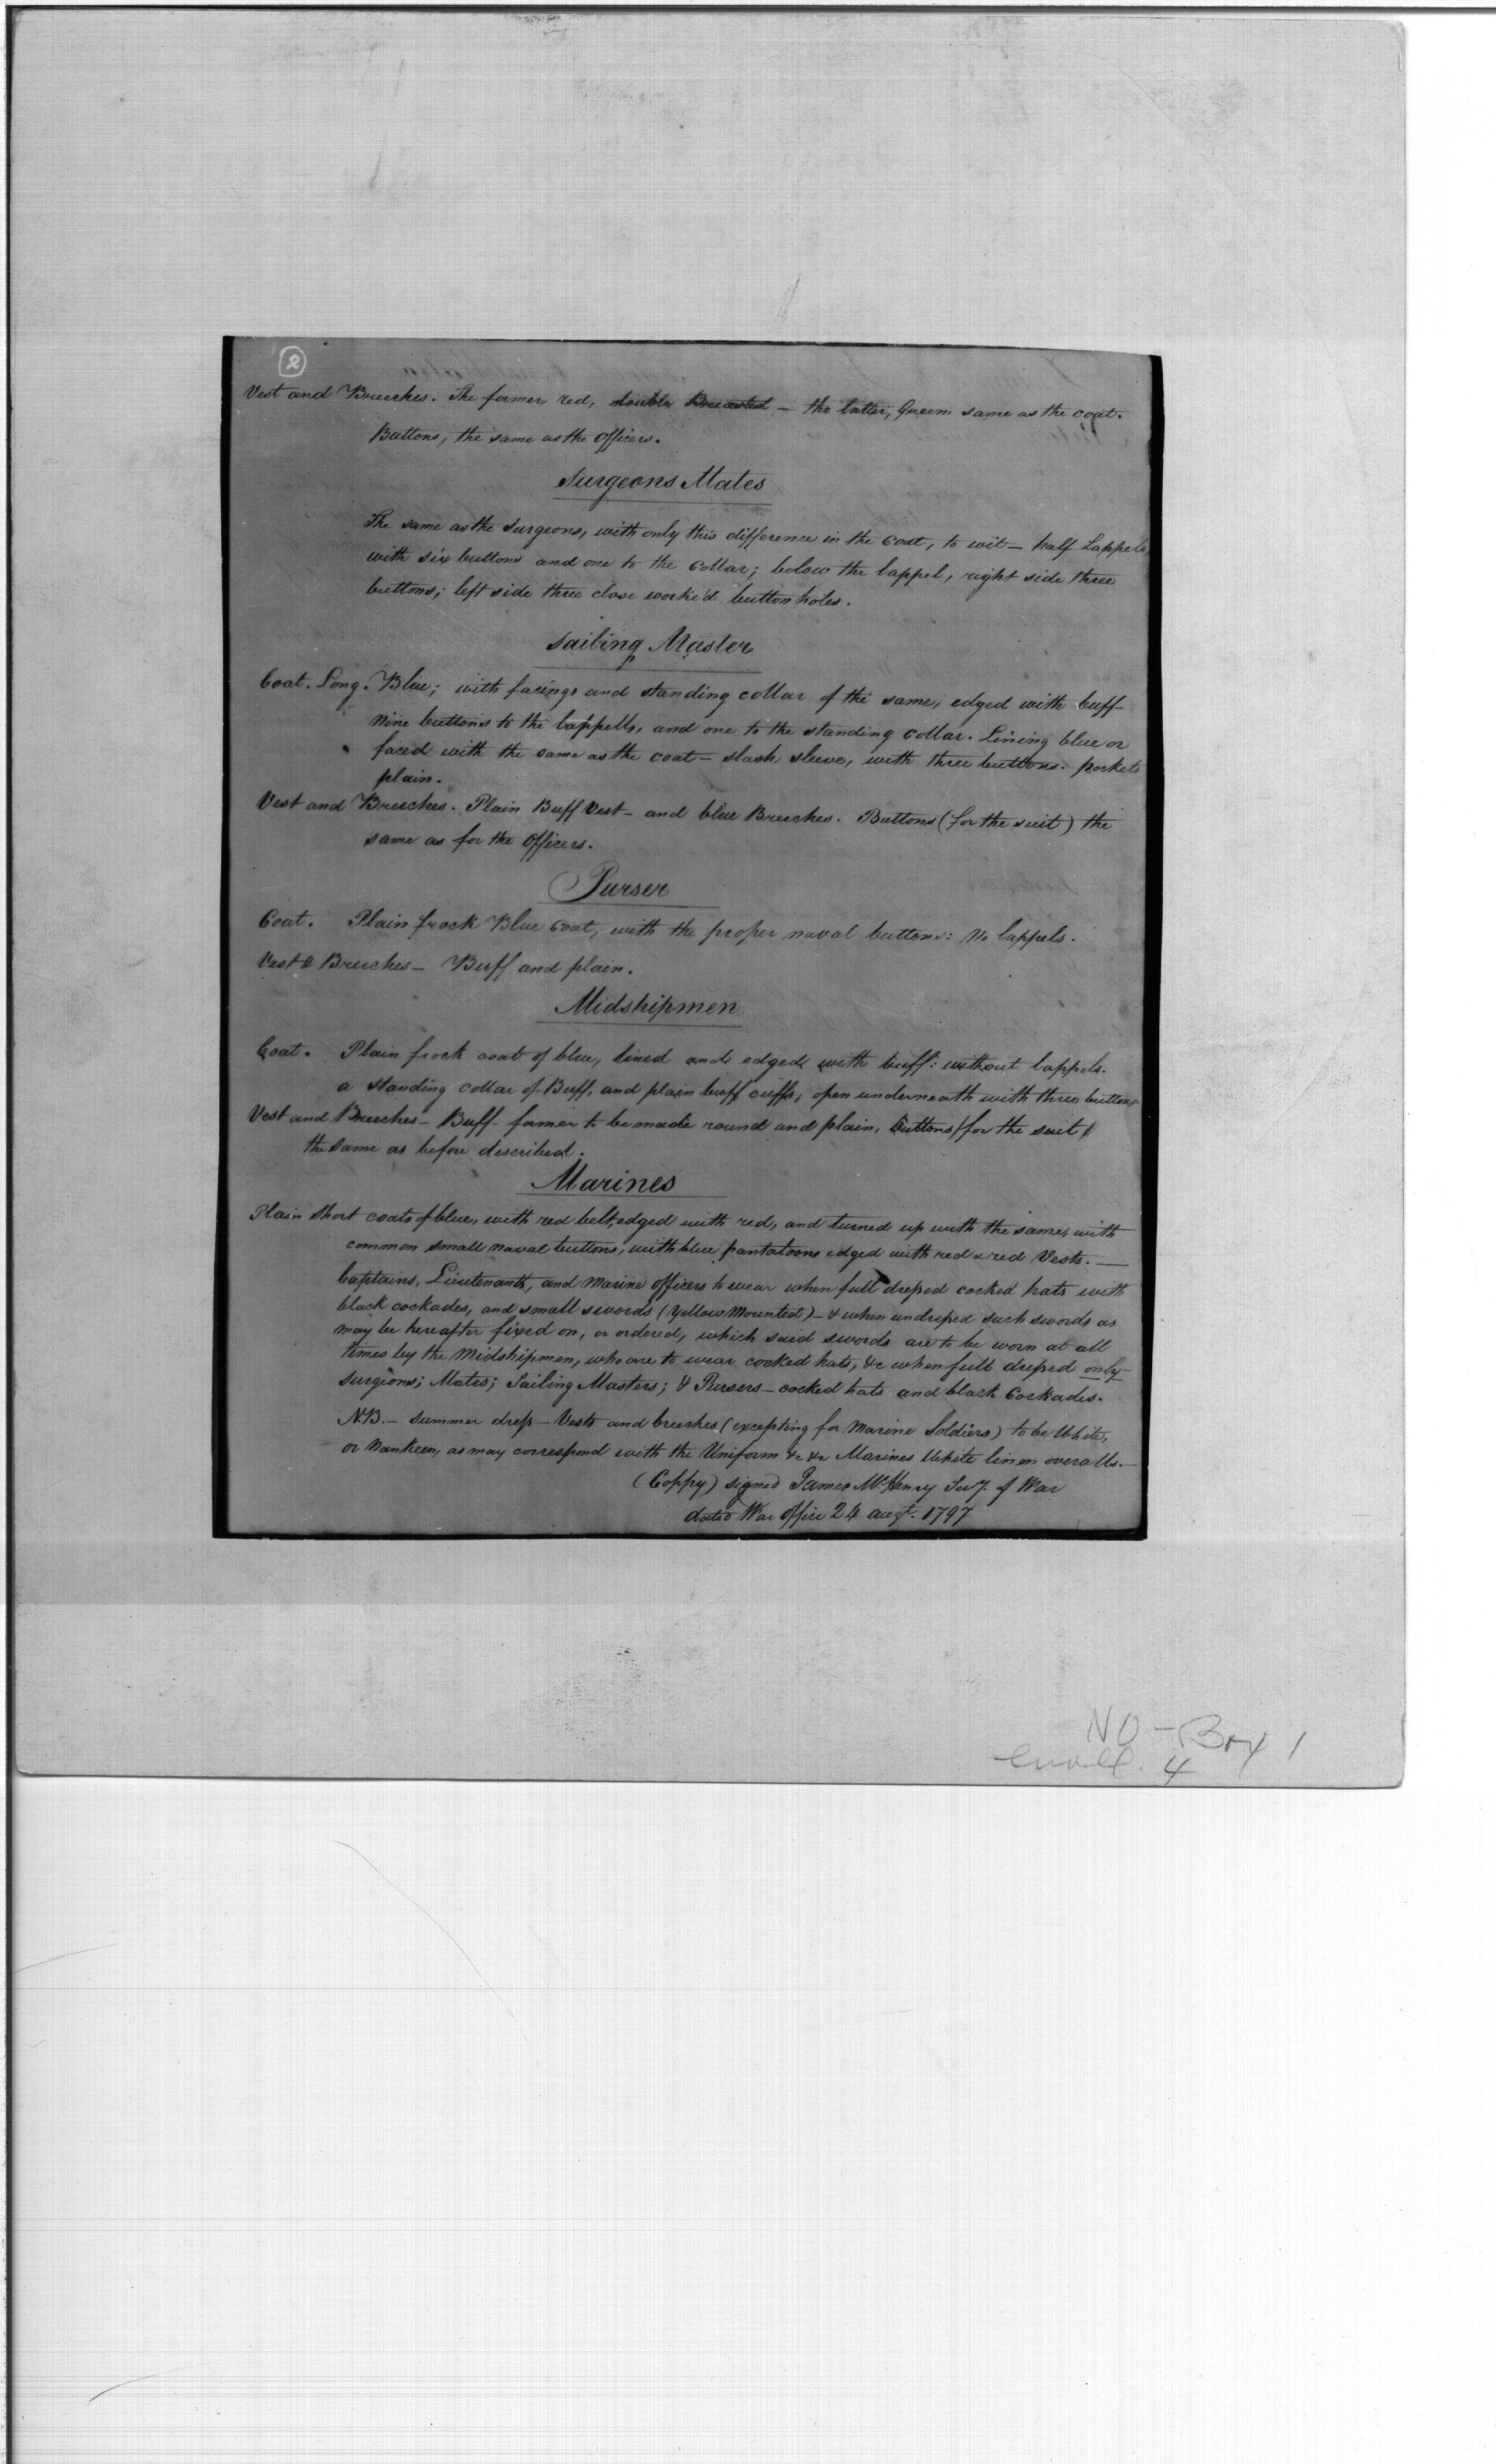 2
Vest and Breeches. The former, red, double Breasted — the latter, Green same as the coat.
Buttons, the same as the Officers.
Surgeons Mates
The same as the Surgeons, with only this difference in the Coat, to wit — half Lappels,
with six buttons and one to the Collar; below the lappel, right side three
buttons; left side three close work'd button holes.
Sailing Master
Coat. Long. Blue; with facings and standing collar of the same, edged with buff
Nine buttons to the lappells, and one to the standing collar. Lining blue or
faced with the same as the coat — slash sleeve, with three buttons. pockets
plain.
Vest and Breeches. Plain Buff Vest — and blue Breeches. Buttons (for the suit) the
same as for the Officers.
Purser
Coat. Plain frock Blue Coat, with the proper naval buttons: No lappels.
Vest & Breeches — Buff and plain.
Midshipmen
Coat. Plain frock coat of blue, lined and edged with buff: without lappels.
a standing collar of Buff, and plain buff cuffs; open underneath with three buttons
Vest and Breeches — Buff — former to be made round and plain, buttons (for the suit)
the same as before described.
Marines
Plain short coats of blue, with red belt, edged with red, and turned up with the same, with
common small naval buttons, with blue pantaloons edged with red & red Vests. —
Captains, Lieutenants, and Marine Officers to wear when full dressed cocked hats with
black cockades, and small swords (yellow Mounted) — & when undressed such swords as
may be hereafter fixed on, or ordered, which said swords are to be worn at all
times by the Midshipmen, who are to wear cocked hats, &c when full dressed only
Surgeons; Mates; Sailing Masters; & Pursers — cocked hats and black Cockades.
N.B. — Summer dress — Vests and breeches (excepting for Marine Soldiers) to be White,
or Nankeen, as may correspond with the Uniform &c &c Marines White linen overalls. —
(Coppy) signed James McHenry Secy. of War
dated War Office 24 augt. 1797
NO - Box 1
4